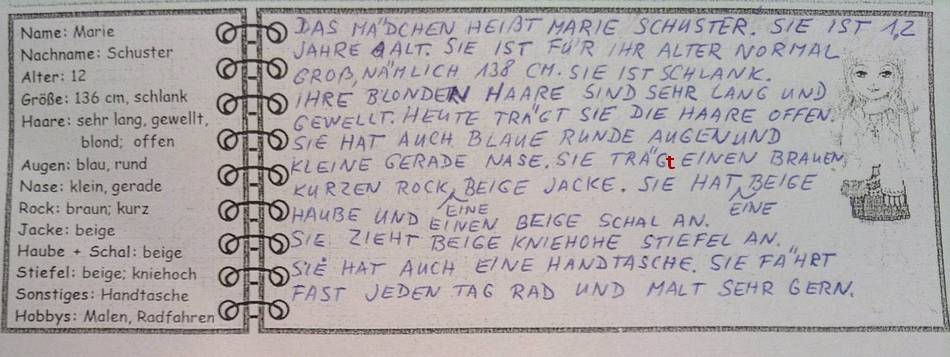 Name: Marie
Nachname: Schuster
Alter: 12
Größe: 136 cm, schlank
Haare: sehr lang, gewellt,
blond; offen
Augen: blau, rund
Nase: klein, gerade
Rock: braun; kurz
Jacke: beige
Haube + Schal: beige
Stiefel: beige; kniehoch
Sonstiges: Handtasche
Hobbys: Malen, Radfahren
DAS MÄDCHEN HEIßT MARIE SCHUSTER. SIE IST 12
JAHRE ALT. SIE IST FÜR IHR ALTER NORMAL
GROß, NÄMLICH 138 CM. SIE IST SCHLANK.
IHRE BLONDEN HAARE SIND SEHR LANG UND
GEWELLT. HEUTE TRÄGT SIE DIE HAARE OFFEN.
SIE HAT AUCH BLAUE RUNDE AUGEN UND
KLEINE GERADE NASE. SIE TRÄGt EINEN BRAUEN
KURZEN ROCK, BEIGE JACKE. SIE HAT BEIGE
EINE EINE
HAUBE UND EINEN BEIGE SCHAL AN.
SIE ZIEHT BEIGE KNIEHOHE STIEFEL AN.
SIE HAT AUCH EINE HANDTASCHE. SIE FÄHRT
FAST JEDEN TAG RAD UND MALT SEHR GERN.